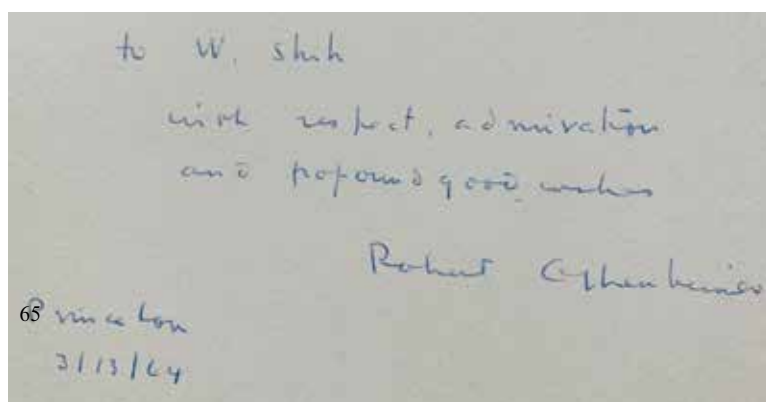 to W. Shih
with respect, admiration
and profound good wishes
Robert Oppenheimer
65
Princeton
3/13/64